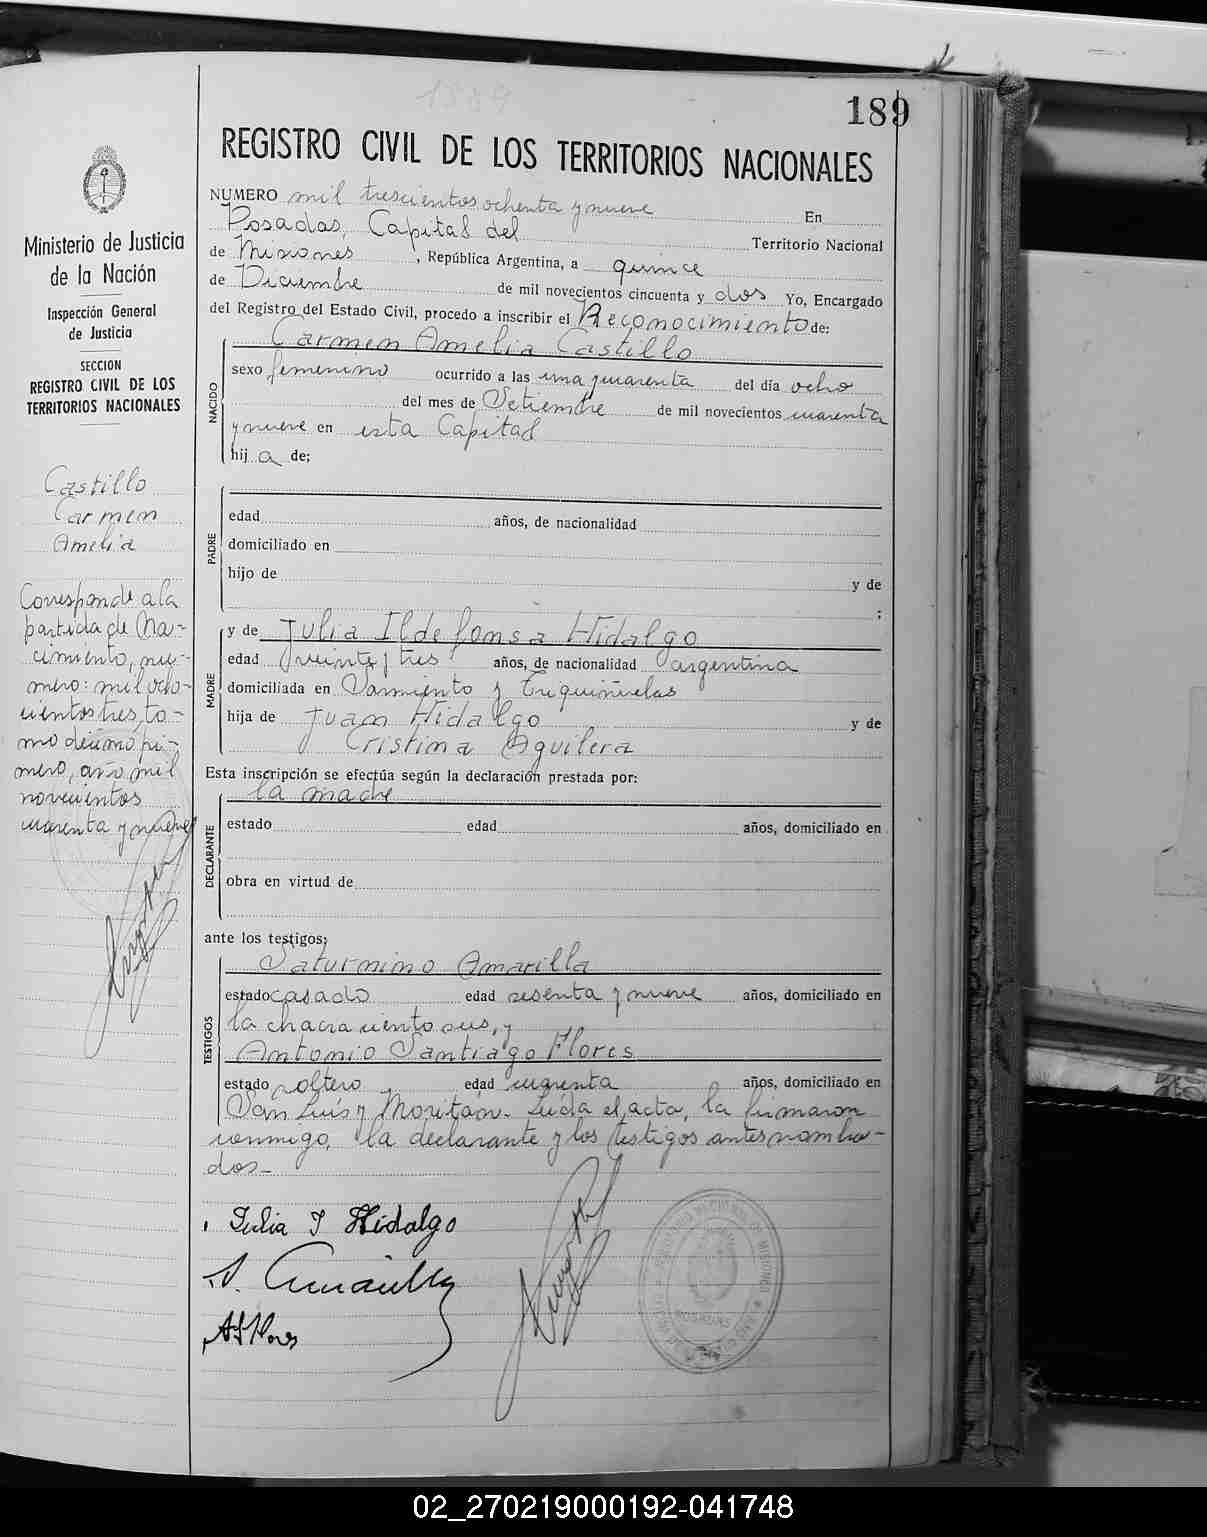 1389
189
REGISTRO CIVIL DE LOS TERRITORIOS NACIONALES
NUMERO mil trescientos ochenta y nueve En
Posadas, Capital del Territorio Nacional
de Misiones, República Argentina, a quince
de Diciembre de mil novecientos cincuenta y dos Yo, Encargado
del Registro del Estado Civil, procedo a inscribir el Reconocimiento de:
Carmen Amelia Castillo
NACIDO
sexo femenino ocurrido a las una y cuarenta del día ocho
del mes de Setiembre de mil novecientos cuarenta
y nueve en esta Capital
hij a de;
PADRE
edad años, de nacionalidad
domiciliado en
hijo de y de
;
MADRE
y de Julia Ildefonsa Hidalgo
edad veinte y tres años, de nacionalidad argentina
domiciliada en Sarmiento y Trequiñuelas
hija de Juan Hidalgo y de
Cristina Aguilera
Esta inscripción se efectúa según la declaración prestada por:
la madre
DECLARANTE
estado edad años, domiciliado en
obra en virtud de
ante los testigos;
Saturnino Amarilla
TESTIGOS
estado casado edad sesenta y nueve años, domiciliado en
la chacra ciento seis, y
Antonio Santiago Flores
estado soltero edad cuarenta años, domiciliado en
San Luís y Moritán. Leída el acta, la firmaron
conmigo, la declarante y los testigos antes nombra-
dos-
Julia I Hidalgo
S. Amarilla
A S Flores
Ministerio de Justicia
de la Nación
Inspección General
de Justicia
SECCION
REGISTRO CIVIL DE LOS
TERRITORIOS NACIONALES
Castillo
Carmen
Amelia
Corresponde a la
partida de Na-
cimiento, nú-
mero: mil ocho-
cientos tres, to-
mo décimo pri-
mero, año mil
novecientos
cuarenta y nueve
02_270219000192-041748